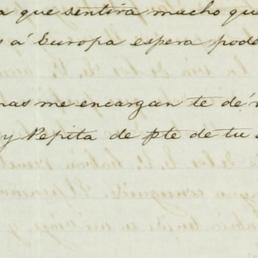 a que sentirá mucho que
s á Europa espera pode
nas me encargan te dé
y Pepita de pte de tu